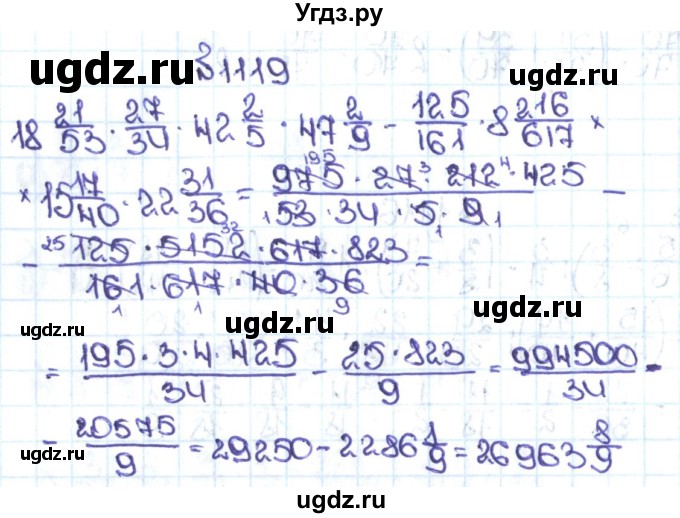 Угдз.ру
ugdz.ru №1119 ugdz.ru
18 21/53 · 27/34 · 42 2/5 · 47 2/9 - 125/161 · 8 216/617 ×
× 15 17/40 · 22 31/36 = 975 · 27 · 212 · 425 / 53 · 34 · 5 · 9 -
195 3 4 1 1 1
- 125 · 5152 · 617 · 823 / 161 · 617 · 40 · 36 =
25 32 1 1 9
ugdz.ru ugdz.ru ugdz.ru
= 195 · 3 · 4 · 425 / 34 - 25 · 823 / 9 = 994500 / 34 -
- 20575 / 9 = 29250 - 2286 1/9 = 26963 8/9
ugdz.ru ugdz.ru
ugdz.ru